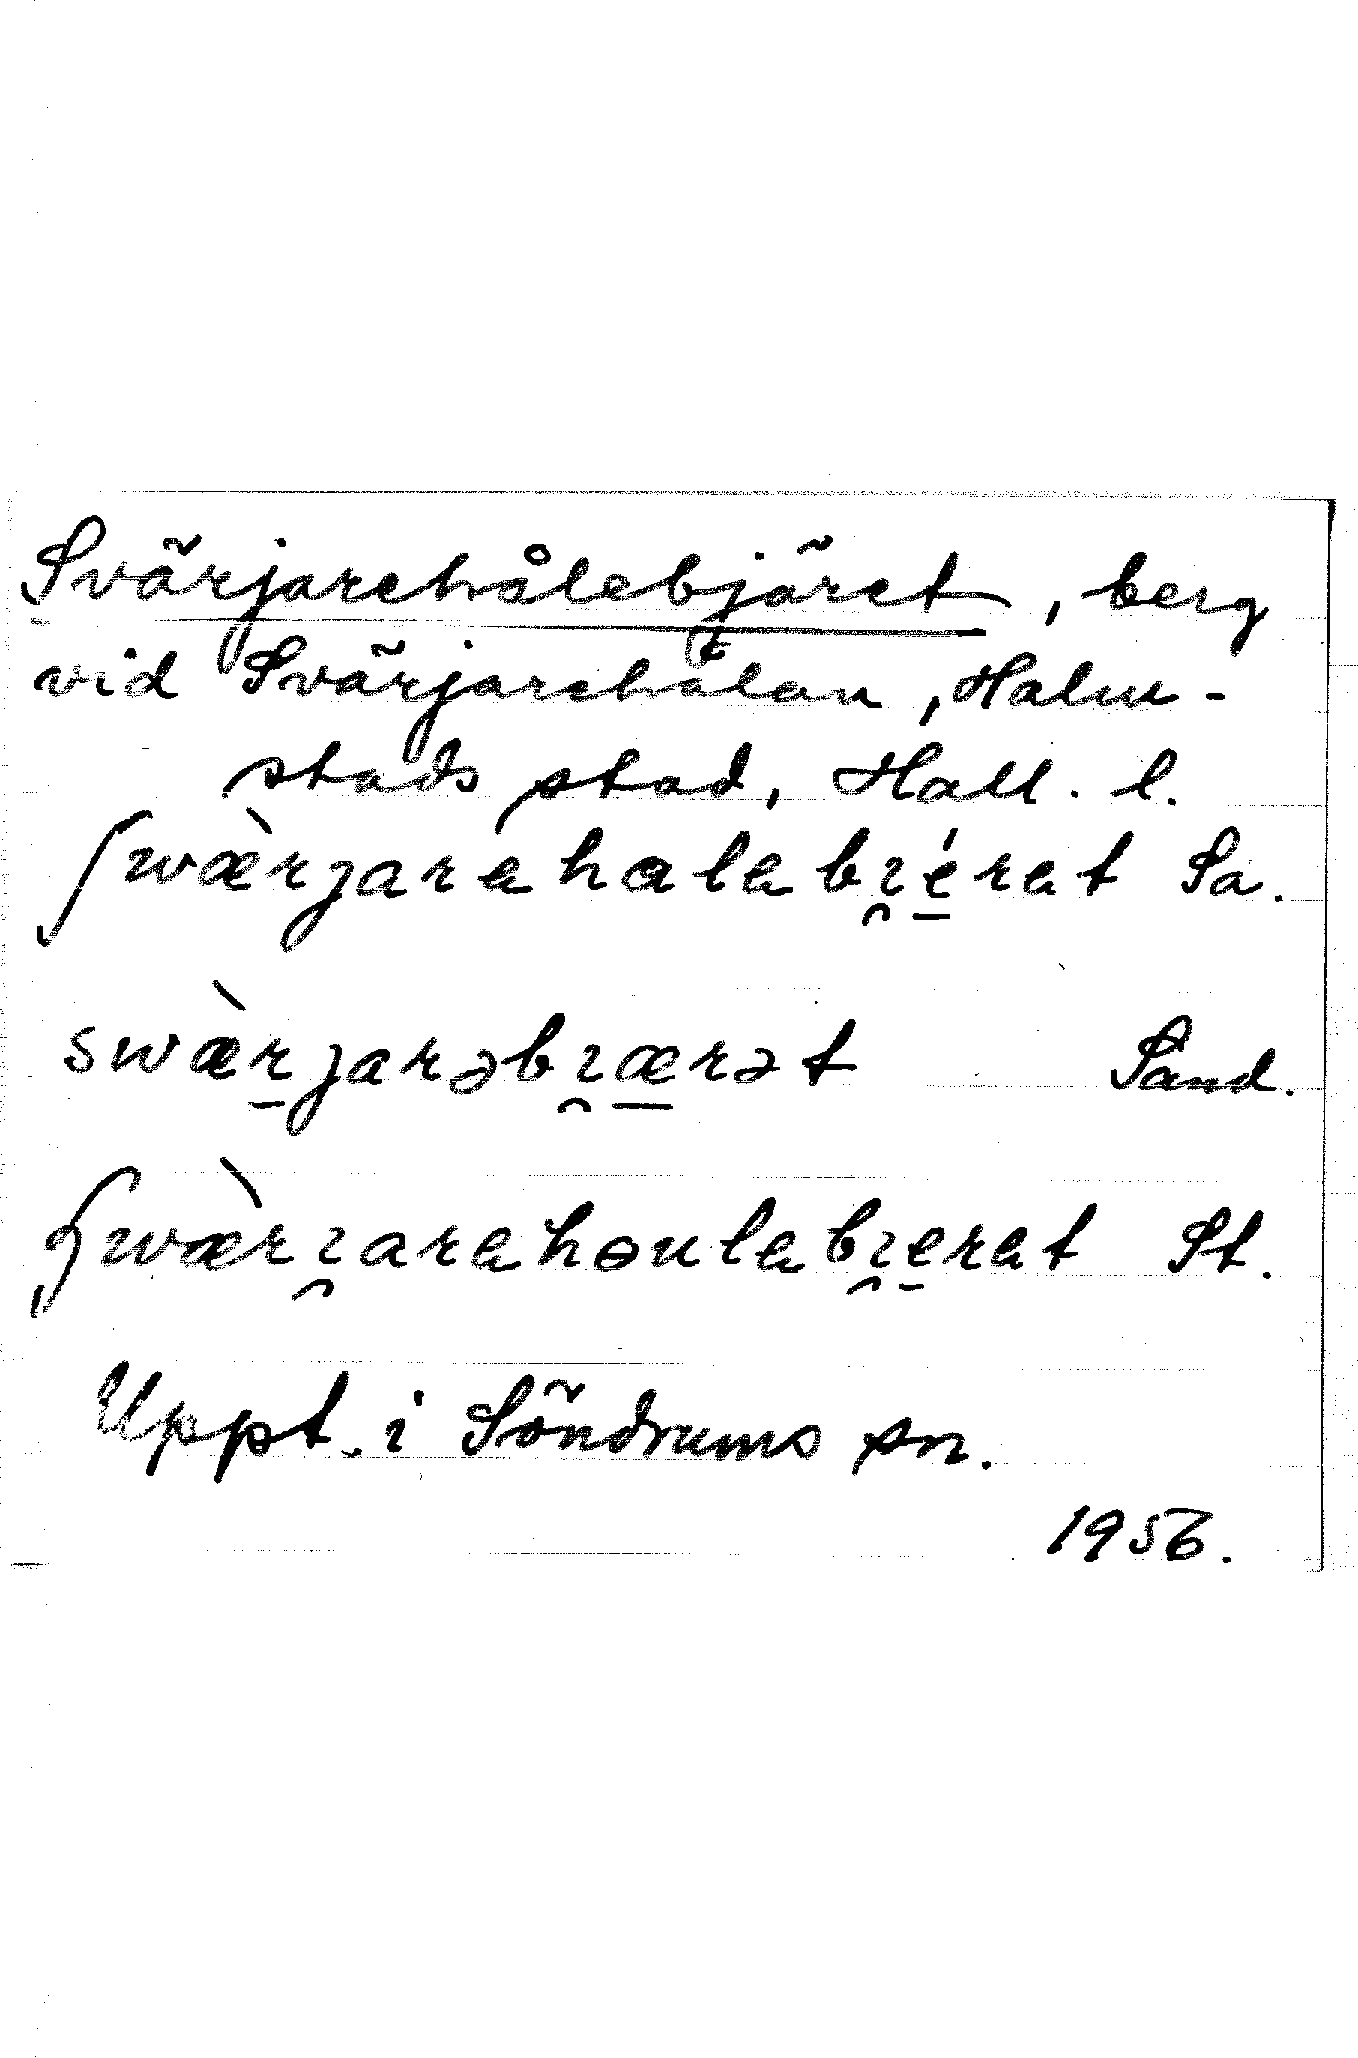 Svärjarehålebjäret, berg
vid Svärjarehålan, Halm-
stads stad, Hall. l.
ʃwæ̀rȷarahalabı̯é̱rat Sa.
swæ̀ṟȷarəbı̯æ̱rət Sand.
ʃwæ̀rı̯arahɵulabı̯e̱rat St.
Uppt. i Söndrums sn.
1956.